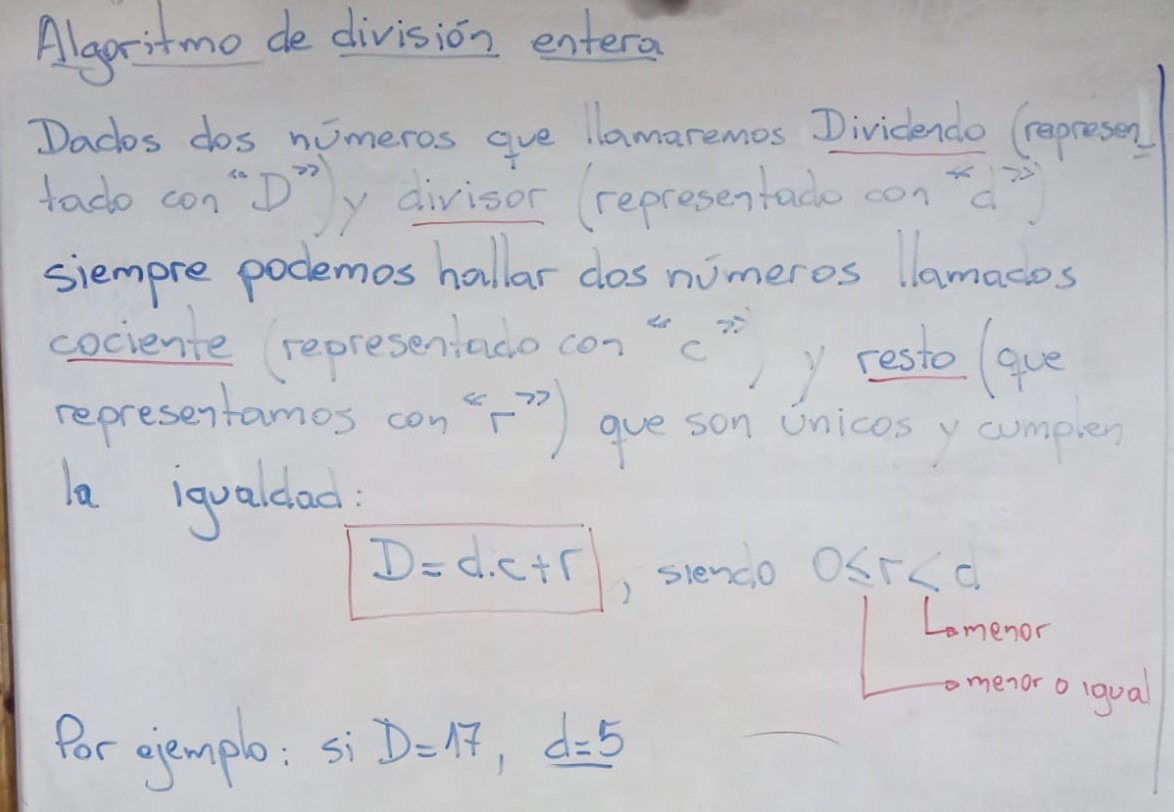 Algoritmo de división entera
Dados dos números que llamaremos Dividendo (represen-
tado con "D") y divisor (representado con "d")
siempre podemos hallar dos números llamados
cociente (representado con "c") y resto (que
representamos con "r") que son únicos y cumplen
la igualdad:
D=d.c+r, siendo 0≤r<d
menor
menor o igual
Por ejemplo: si D=17, d=5